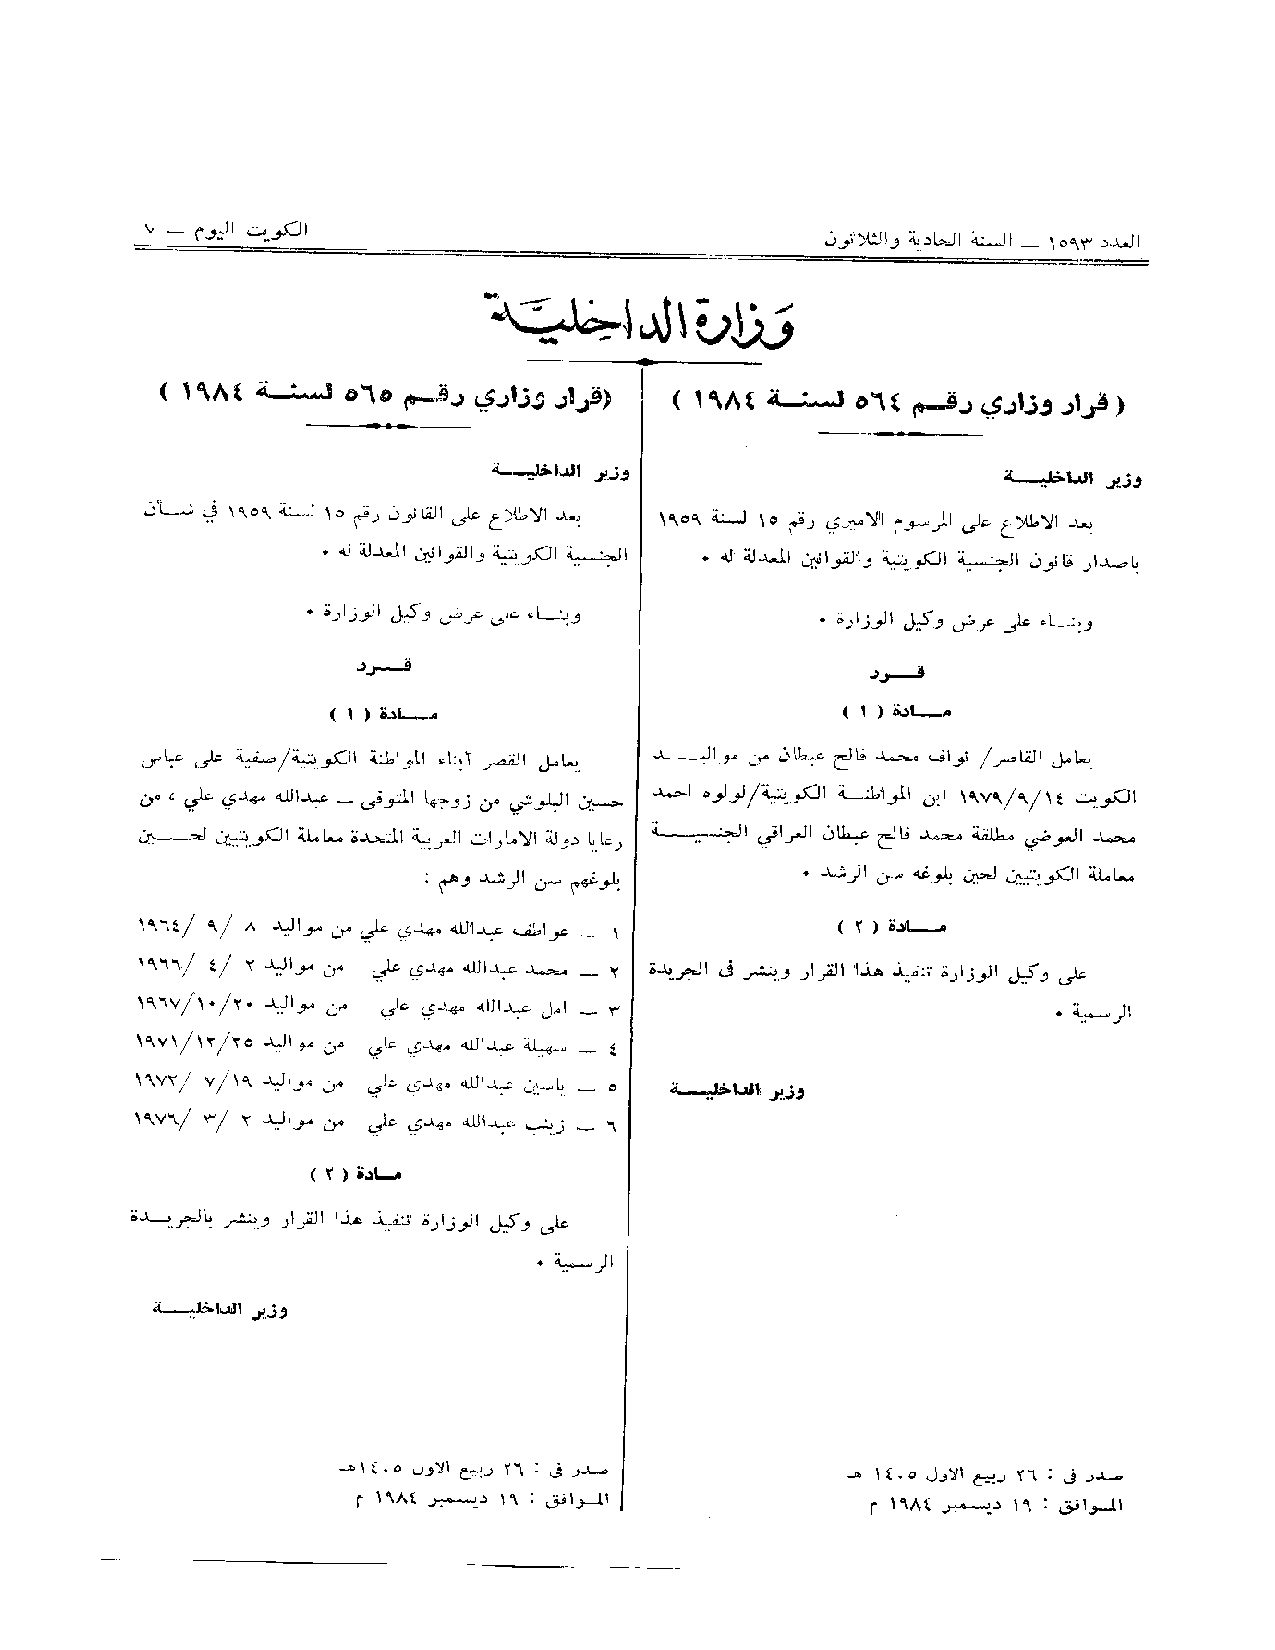 العدد ١٥٩٣ — السنة الحادية والثلاثون
الكويت اليوم — ٧
وزارة الداخلية
( قرار وزاري رقم ٥٦٤ لسنة ١٩٨٤ )
وزير الداخلية
بعد الاطلاع على المرسوم الاميري رقم ١٥ لسنة ١٩٥٩
باصدار قانون الجنسية الكويتية والقوانين المعدلة له •
وبناء على عرض وكيل الوزارة •
قرر
مادة ( ١ )
يعامل القاصر/ نواف محمد فالح عبطان من مواليد
الكويت ١٩٧٩/٩/١٤ ابن المواطنة الكويتية/لولوه احمد
محمد العوضي مطلقة محمد فالح عبطان العراقي الجنسية
معاملة الكويتيين لحين بلوغه سن الرشد •
مادة ( ٢ )
على وكيل الوزارة تنفيذ هذا القرار وينشر في الجريدة
الرسمية •
وزير الداخلية
صدر في : ٢٦ ربيع الاول ١٤٠٥ هـ
الموافق : ١٩ ديسمبر ١٩٨٤ م
(قرار وزاري رقم ٥٦٥ لسنة ١٩٨٤ )
وزير الداخلية
بعد الاطلاع على القانون رقم ١٥ لسنة ١٩٥٩ في شأن
الجنسية الكويتية والقوانين المعدلة له •
وبناء على عرض وكيل الوزارة •
قرر
مادة ( ١ )
يعامل القصر أبناء المواطنة الكويتية/صفية على عباس
حسين البلوشي من زوجها المتوفى — عبدالله مهدي علي ، من
رعايا دولة الامارات العربية المتحدة معاملة الكويتيين لحين
بلوغهم سن الرشد وهم :
١ — عواطف عبدالله مهدي علي من مواليد ٨ /٩ /١٩٦٤
٢ — محمد عبدالله مهدي علي من مواليد ٢ /٤ /١٩٦٦
٣ — امل عبدالله مهدي علي من مواليد ١٩٦٧/١٠/٢٠
٤ — سهيلة عبدالله مهدي علي من مواليد ١٩٧١/١٢/٢٥
٥ — ياسين عبدالله مهدي علي من مواليد ١٩/٧ /١٩٧٢
٦ — زينب عبدالله مهدي علي من مواليد ٢ /٣ /١٩٧٦
مادة ( ٢ )
على وكيل الوزارة تنفيذ هذا القرار وينشر بالجريدة
الرسمية •
وزير الداخلية
صدر في : ٢٦ ربيع الاول ١٤٠٥هـ
الموافق : ١٩ ديسمبر ١٩٨٤ م